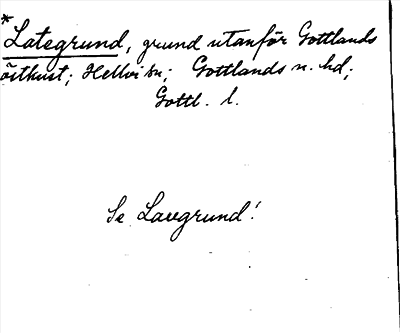 *
Lategrund, grund utanför Gottlands
östkust; Hellvi sn; Gottlands n. hd;
Gottl. l.
Se Lavegrund!